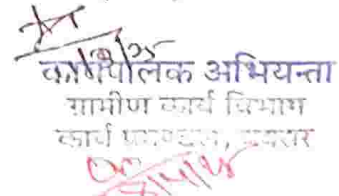 कार्यपालक अभियन्ता
ग्रामीण कार्य विभाग
कार्य प्रमण्डल, बक्सर